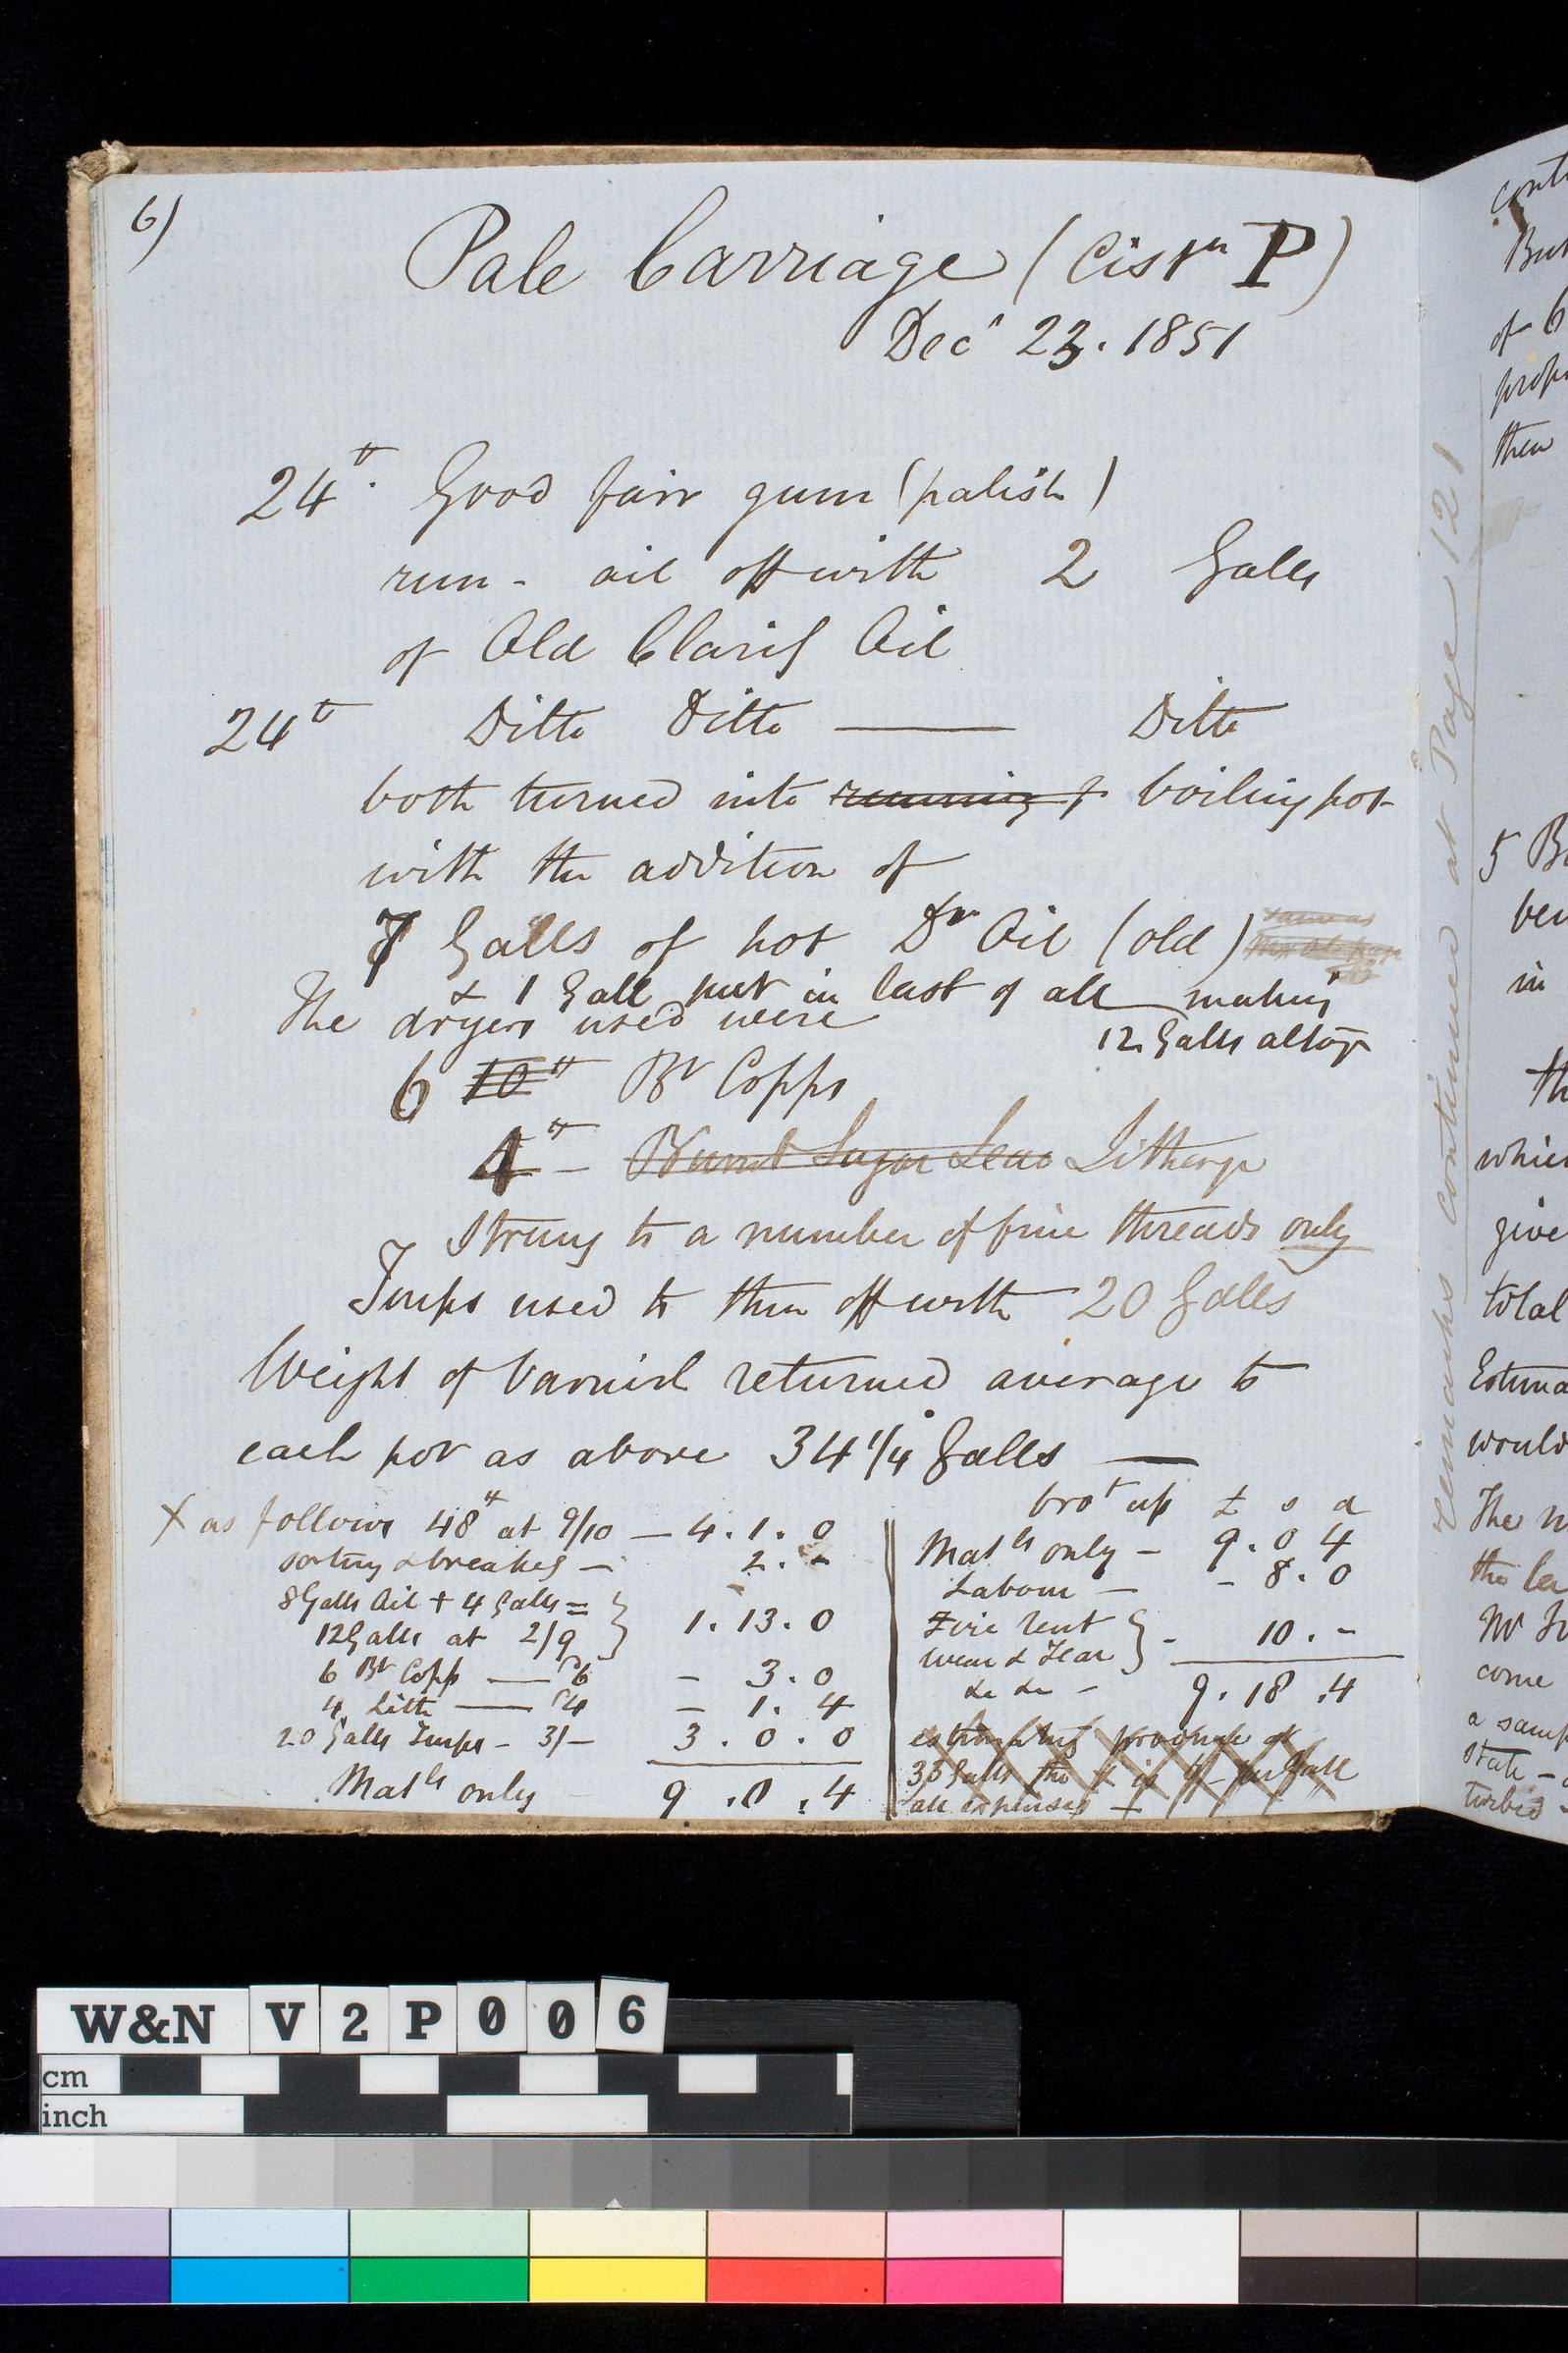 6)
Pale Carriage (Cisrn P)
Decr 23. 1851
24 lb. Good fair gum (palish)
run - oil off with 2 Galls
of Old Clarif Oil
24 lb Ditto Ditto — Ditto
both turned into running p boiling pot
with the addition of
7 Galls of hot Dr Oil (old)
& 1 Gall put in last of all making
The dryers used were
12 Galls altogr
6 10 lb Bt Copps
4 lb - Burnt Sugar Lead Litharge
Strung to a number of fine threads only
Turps used to thin off with 20 Galls
Weight of Varnish returned average to
each pot as above 34 1/4 Galls —
X as follows 48 lb at 9/10 — 4.1.0
sorting & breakg — 2. -
8 Galls Oil + 4 Galls =
12 Galls at 2/9 } 1.13.0
6 Bt Copp — 6 - 3.0
4 Lith — 4 - 1.4
20 Galls Turps - 3/- 3.0.0
Matls only 9.0.4
brot up £ s d
Matls only - 9.0 4
Labour — - 8.0
Fire rent
Wear & Tear } - 10. -
&c &c - 9.18.4
estimating produce at
33 Galls the
all expenses —
remarks continued at Page 121
of 6
then
5
in
which
give
total
would
The
come
a samp
State -
W&N V2P006
cm
inch